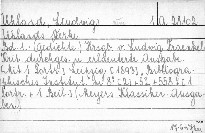 Uhland, Ludwig 1 A 28102
Uhlands Werke.
Bd. 1. (Gedichte) Hrsg. v. Ludwig Fraenkel.
Krit. durchges. u. erläuterte Ausgabe.
Leipzig (1893), Bibliogra-
phisches Institut. 8° 558 S. 1
1 Beil. (Meyers Klassiker-Ausga-
ben)